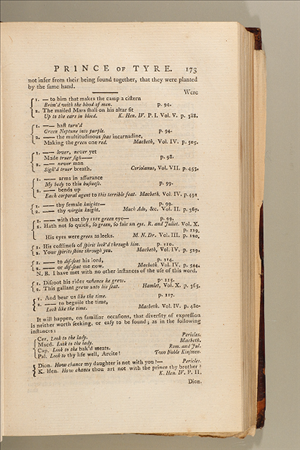 PRINCE OF TYRE. 175
not infer from their being found together, that they were planted
by the same hand.
Were
1. — to him that makes the camp a cistern
Brim'd with the blood of men. p. 94.
2. The mailed Mars shall on his altar sit
Up to the ears in blood. K. Hen IV. P. I. Vol. V. p. 388.
1. — hast turn'd
Green Neptune into purple. p. 94.
2. — the multitudinous seas incarnadine,
Making the green one red. Macbeth, Vol. IV. p. 505.
1. — braver, never yet
Made truer sigh— p. 98.
2. — never man
Sigh'd truer breath. Coriolanus, Vol. VII.
1. — arms in assurance
My body to this business. p. 99.
2. — bends up
Each corporal agent to this terrible feat. Macbeth, Vol. IV.
1. — thy female knights— p. 99.
2. — thy virgin knight. Much Ado, &c. Vol. II. p. 367.
1. — with that thy rare green eye—
2. Hath not so quick, so green, so fair an eye. R. and Juliet. Vol. X.
His eyes were green as leeks. M. N. Dr. Vol. III. p.
1. His costliness of spirit look'd through him. p. 110.
2. Your spirits shine through you. Macbeth, Vol. IV. p.
1. — to dis-seat his lord, p. 114.
2. — or dis-seat me now. Macbeth Vol. IV. p.
N. B. I have met with no other instances of the use of this word.
1. Disroot his rider whence he grew. p.
2. This gallant grew unto his seat. Hamlet, Vol. X. p. 365.
1. And bear us like the time. p. 117.
2. — to beguile the time,
Look like the time. Macbeth, Vol. IV. p. 480.
It will happen, on familiar occasions, that diversity of expression
is neither worth seeking, or easy to be found; as in the following
instances:
Cer. Look to the lady. Pericles.
Macd. Look to the lady. Macbeth.
Cap. Look to the bak'd meats. Rom. and Jul.
Pal. Look to thy life well, Arcite! Two Noble Kinsmen.
Dion. How chance my daughter is not with you?— Pericles.
K. Hen. How chance thou art not with the prince thy brother?
K. Hen IV. P. II.
Dion.